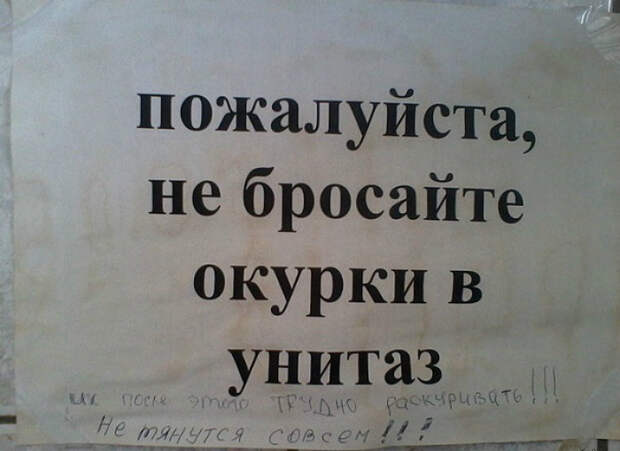 пожалуйста,
не бросайте
окурки в
унитаз
их после этого ТРУДНО раскуривать!!!
Не тянутся совсем!!!